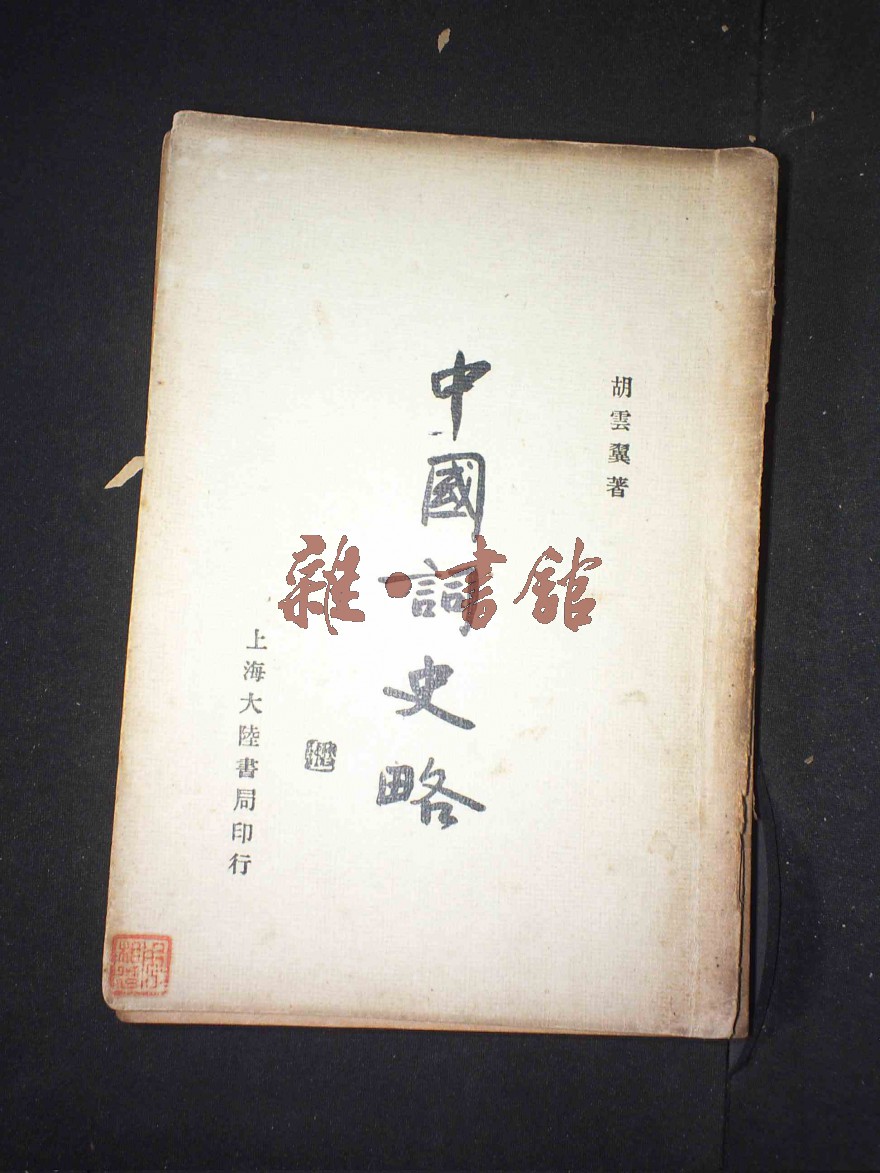 胡雲翼著
中國詞史略
上海大陸書局印行
雜·書館